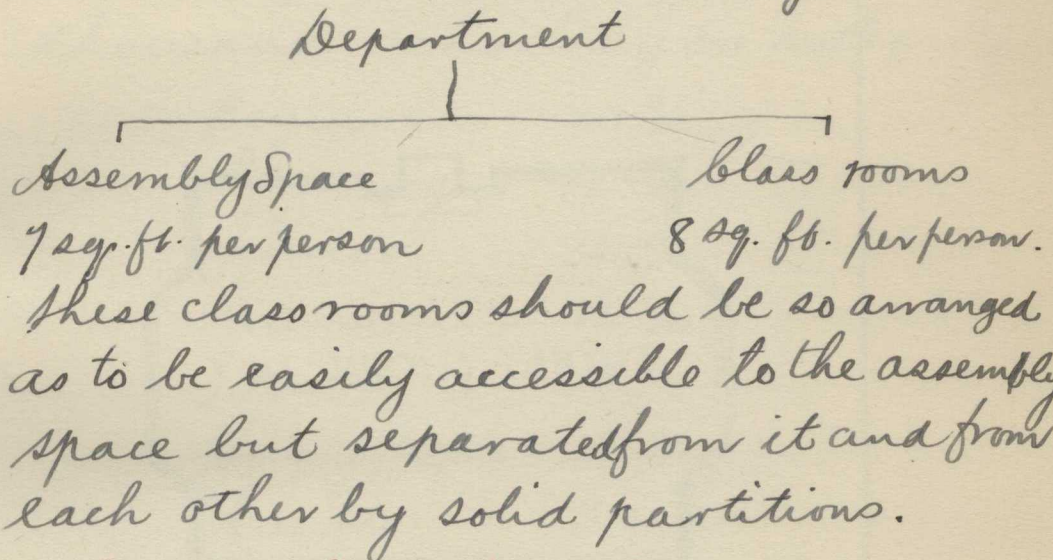 Department
Assembly Space Class rooms
7 sq. ft. per person 8 sq. ft. per person.
these class rooms should be so arranged
as to be easily accessible to the assembly
space but separated from it and from
each other by solid partitions.